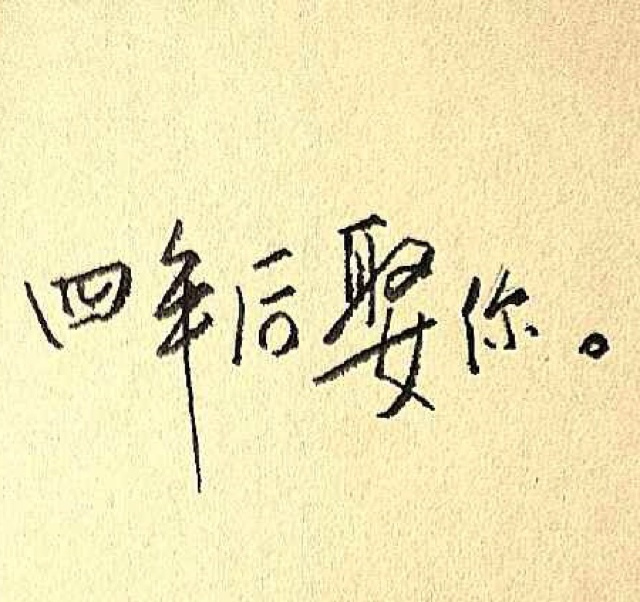 四年后娶你。